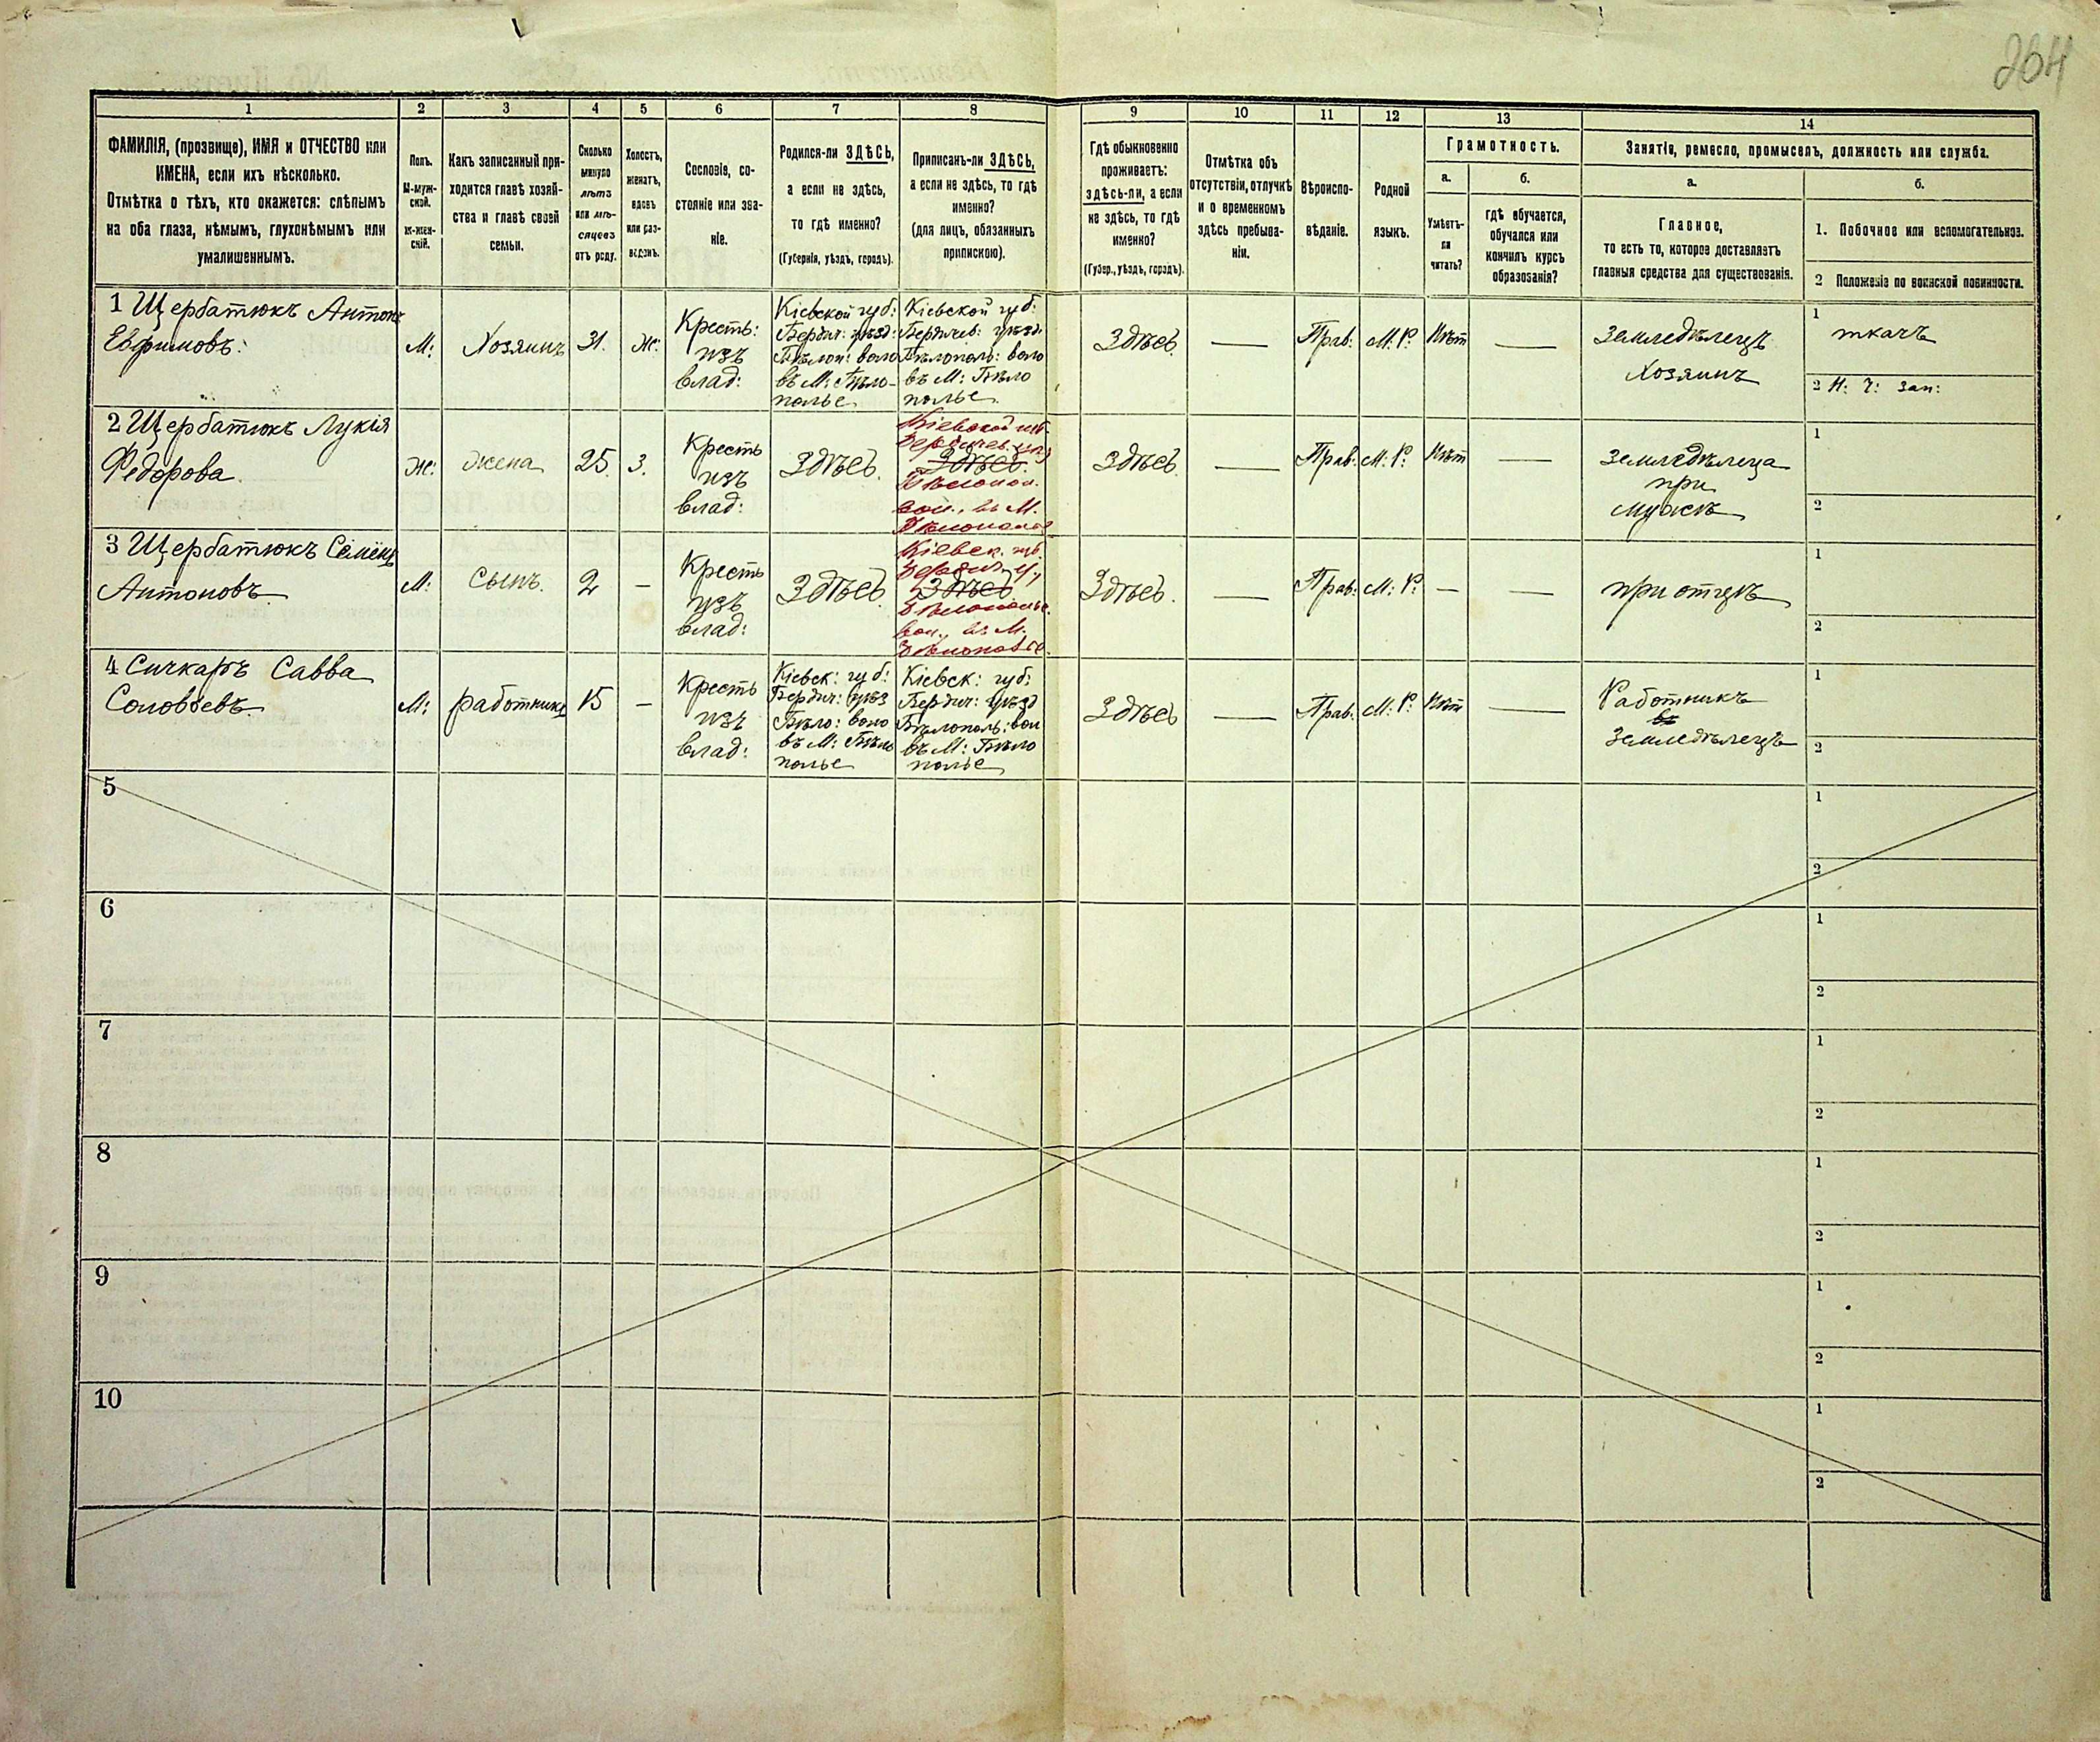 264
1
2
3
4
5
6
7
8
9
10
11
12
13
14
ФАМИЛІЯ, (прозвище), ИМЯ и ОТЧЕСТВО или
ИМЕНА, если ихъ нѣсколько.
Отмѣтка о тѣхъ, кто окажется: слѣпымъ
на оба глаза, нѣмымъ, глухонѣмымъ или
умалишеннымъ.
Полъ.
М-муж-
ской.
Ж-жен-
скій.
Какъ записанный при-
ходится главѣ хозяй-
ства и главѣ своей
семьи.
Сколько
минуло
лѣтъ
или мѣ-
сяцевъ
отъ роду.
Холостъ,
женатъ,
вдовъ
или раз-
веденъ.
Сословіе, со-
стояніе или зва-
ніе.
Родился-ли ЗДѢСЬ,
а если не здѣсь,
то гдѣ именно?
(Губернія, уѣздъ, городъ).
Приписанъ-ли ЗДѢСЬ,
а если не здѣсь, то гдѣ
именно?
(для лицъ, обязанныхъ
припискою).
Гдѣ обыкновенно
проживаетъ:
здѣсь-ли, а если
не здѣсь, то гдѣ
именно?
(Губер., уѣздъ, городъ).
Отмѣтка объ
отсутствіи, отлучкѣ
и о временномъ
здѣсь пребыва-
ніи.
Вѣроиспо-
вѣданіе.
Родной
языкъ.
Грамотность.
а.
Умѣетъ-
ли
читать?
б.
гдѣ обучается,
обучался или
кончилъ курсъ
образованія?
Занятіе, ремесло, промыселъ, должность или служба.
а.
Главное,
то есть то, которое доставляетъ
главныя средства для существованія.
б.
1. Побочное или вспомогательное.
2 Положеніе по воинской повинности.
1 Щербатюкъ Антонъ
Евфимовъ:
М:
Хозяинъ
31.
Ж:
Кресть:
изъ
влад:
Кіевской губ:
Бердич: уѣзд:
Бѣлоп: воло
въ М: Бѣло-
полье
Кіевской губ:
Бердичев: уѣзд:
Бѣлополь: воло
въ М: Бѣло
полье.
Здѣсь
—
Прав:
М: Р:
Нѣт
—
Земледѣлецъ
Хозяинъ
1
ткачъ
2 Н: Ч: Зап:
2 Щербатюкъ Лукія
Федорова
Ж:
жена
25.
З.
Кресть
изъ
влад:
Здѣсь.
Кіевской губ.
Бердичев. уѣз
Здѣсь.
Бѣлопол.
вол., въ М.
Бѣлополье
Здѣсь
—
Прав:
М: Р:
Нѣт
—
Земледѣлеца
при
мужѣ
1
2
3 Щербатюкъ Семёнъ
Антоновъ
М:
Сынъ.
2
—
Кресть
изъ
влад:
Здѣсь.
Кіевск. губ.
Бердич. у.,
Здѣсь
Бѣлополье.
вол., въ М.
Бѣлополье.
Здѣсь.
—
Прав:
М: Р:
—
—
при отцѣ
1
2
4 Сичкаръ Савва
Соловьевъ.
М:
работникъ
15
—
Кресть
изъ
влад:
Кіевск: губ:
Бердич: уѣз
Бѣло: воло
въ М: Бѣло
полье
Кіевск: губ:
Бердич: уѣзд
Бѣлополь: вол
въ М: Бѣло
полье
Здѣсь
—
Прав:
М: Р:
Нѣт
—
Работникъ
въ
Земледѣлецъ
1
2
5
1
2
6
1
2
7
1
2
8
1
2
9
1
2
10
1
2